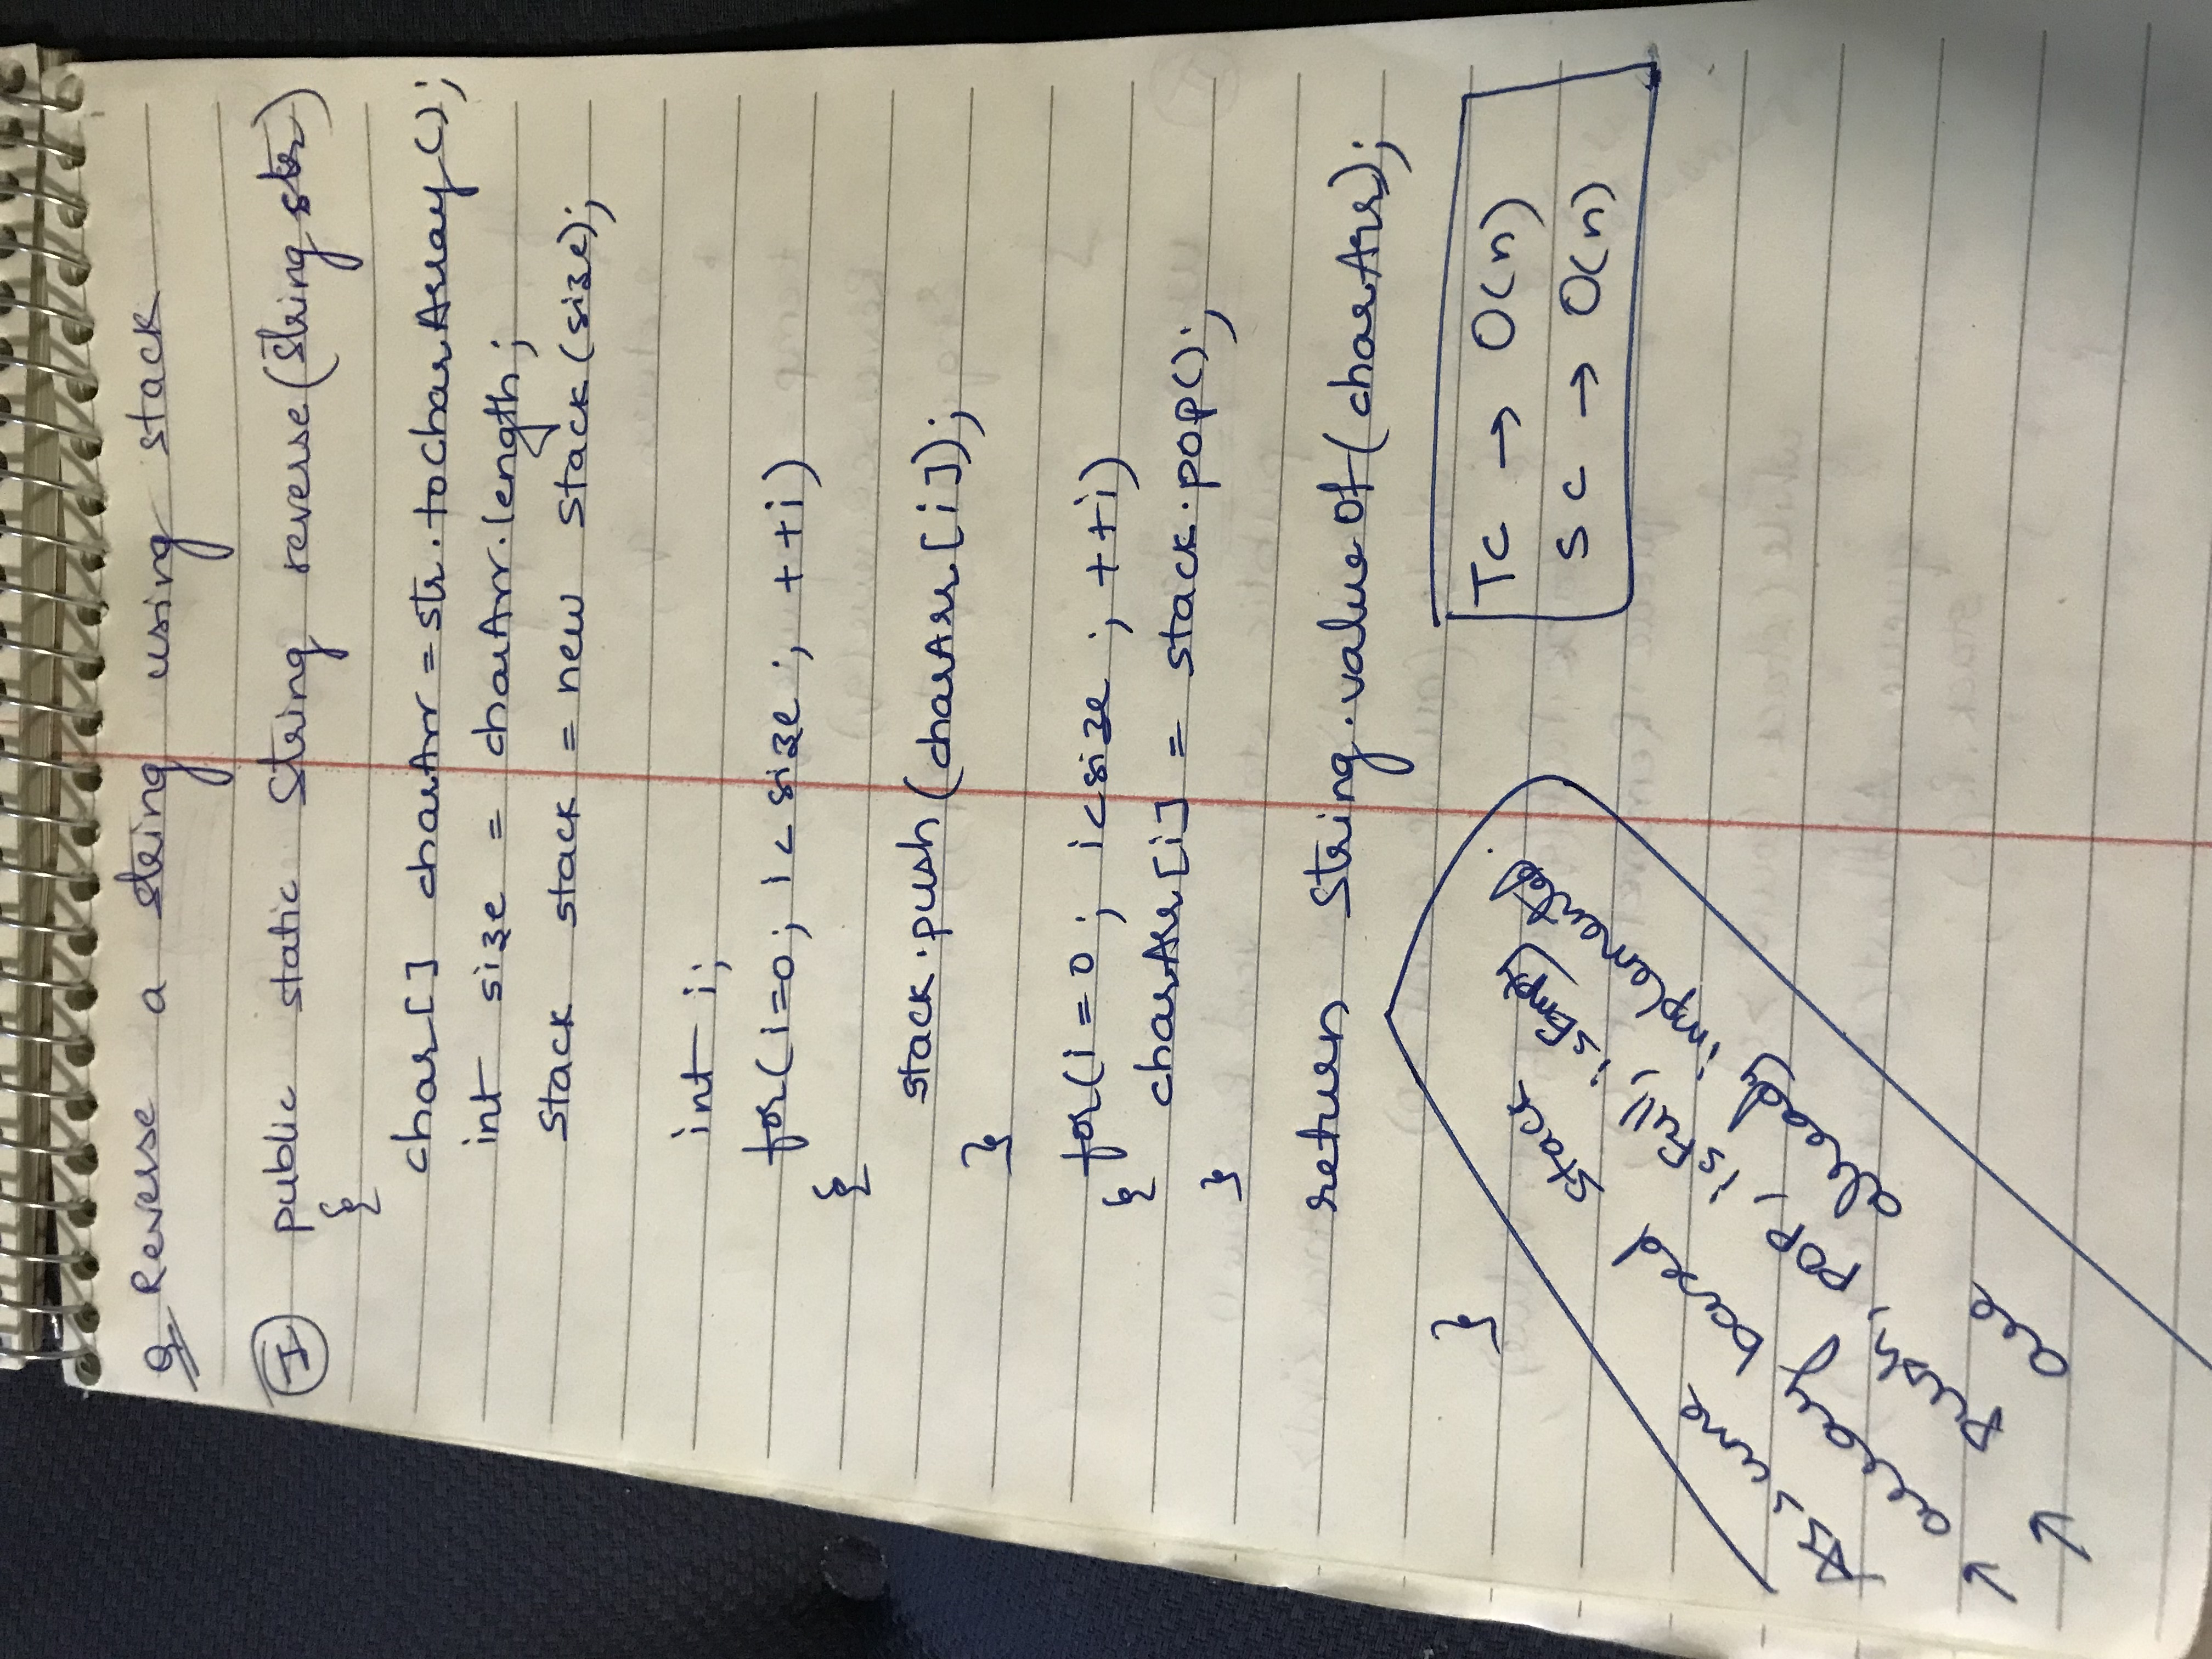 Q Reverse a string using stack
I public static String reverse(String str)
{
char[] charArr = str.toCharArray();
int size = charArr.length;
Stack stack = new Stack(size);
int i;
for(i=0; i<size; ++i)
{
stack.push(charArr[i]);
}
for(i=0; i<size; ++i)
{ charArr[i] = stack.pop();
}
return String.valueOf(charArr);
}
TC → O(n)
SC → O(n)
Assume
→ array based stack
→ push, pop, isFull, isEmpty
are already implemented.